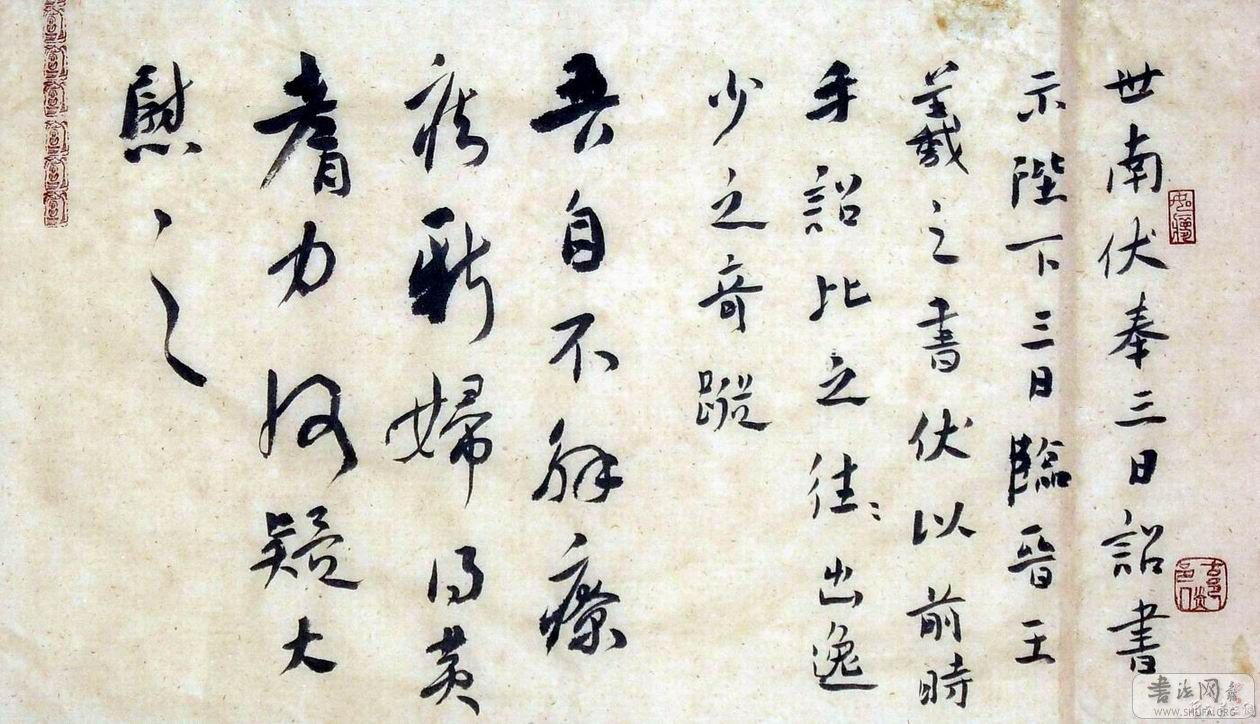 世南伏奉三日詔書
示陛下三日臨晉王
羲之書伏以前時
手詔比之往〻出逸
少之奇蹤
吾自不解療
疾新婦得黄
耆力何疑大
慰之
书法网
WWW.SHUFA.ORG